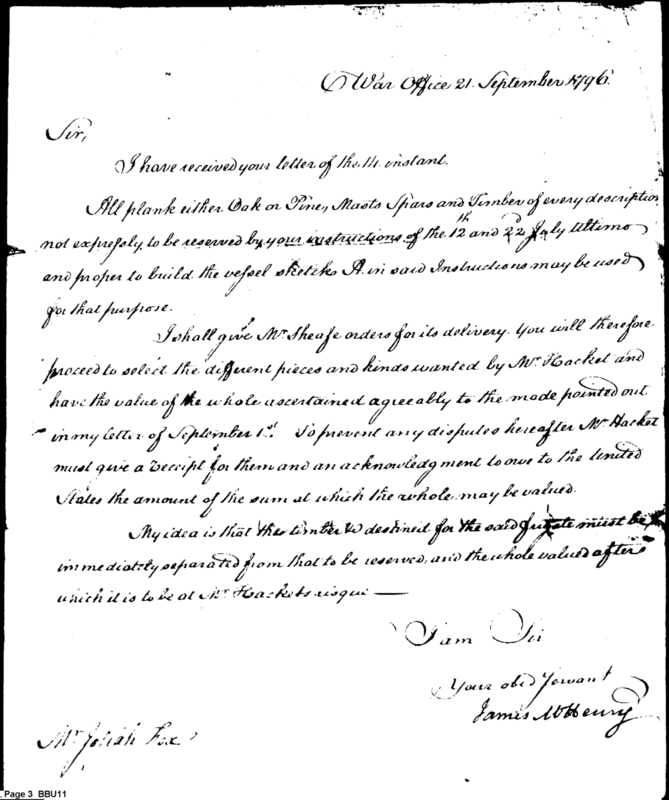 War Office 21. September 1796.
Sir,
I have received your letter of the 14. instant.
All plank either Oak or Pine, Masts Spars and Timber of every description
not expressly to be reserved by your instructions of the 12th and 22d July Ultimo
and proper to build the vessel sketch A. in said Instructions may be used
for that purpose.
I shall give Mr Sheafe orders for its delivery. You will therefore
proceed to select the different pieces and kinds wanted by Mr Hacket and
have the value of the whole ascertained agreeably to the mode pointed out
in my letter of September 1st. To prevent any disputes hereafter Mr Hacket
must give a receipt for them and an acknowledgment to owe to the United
States the amount of the sum at which the whole may be valued.
My idea is that the timber &c destined for the said frigate must be
immediately separated from that to be reserved, and the whole valued after
which it is to be at Mr Hackets risque —
I am Sir
Your obed Servant
James McHenry
Mr Josiah Fox
Page 3 BBU11